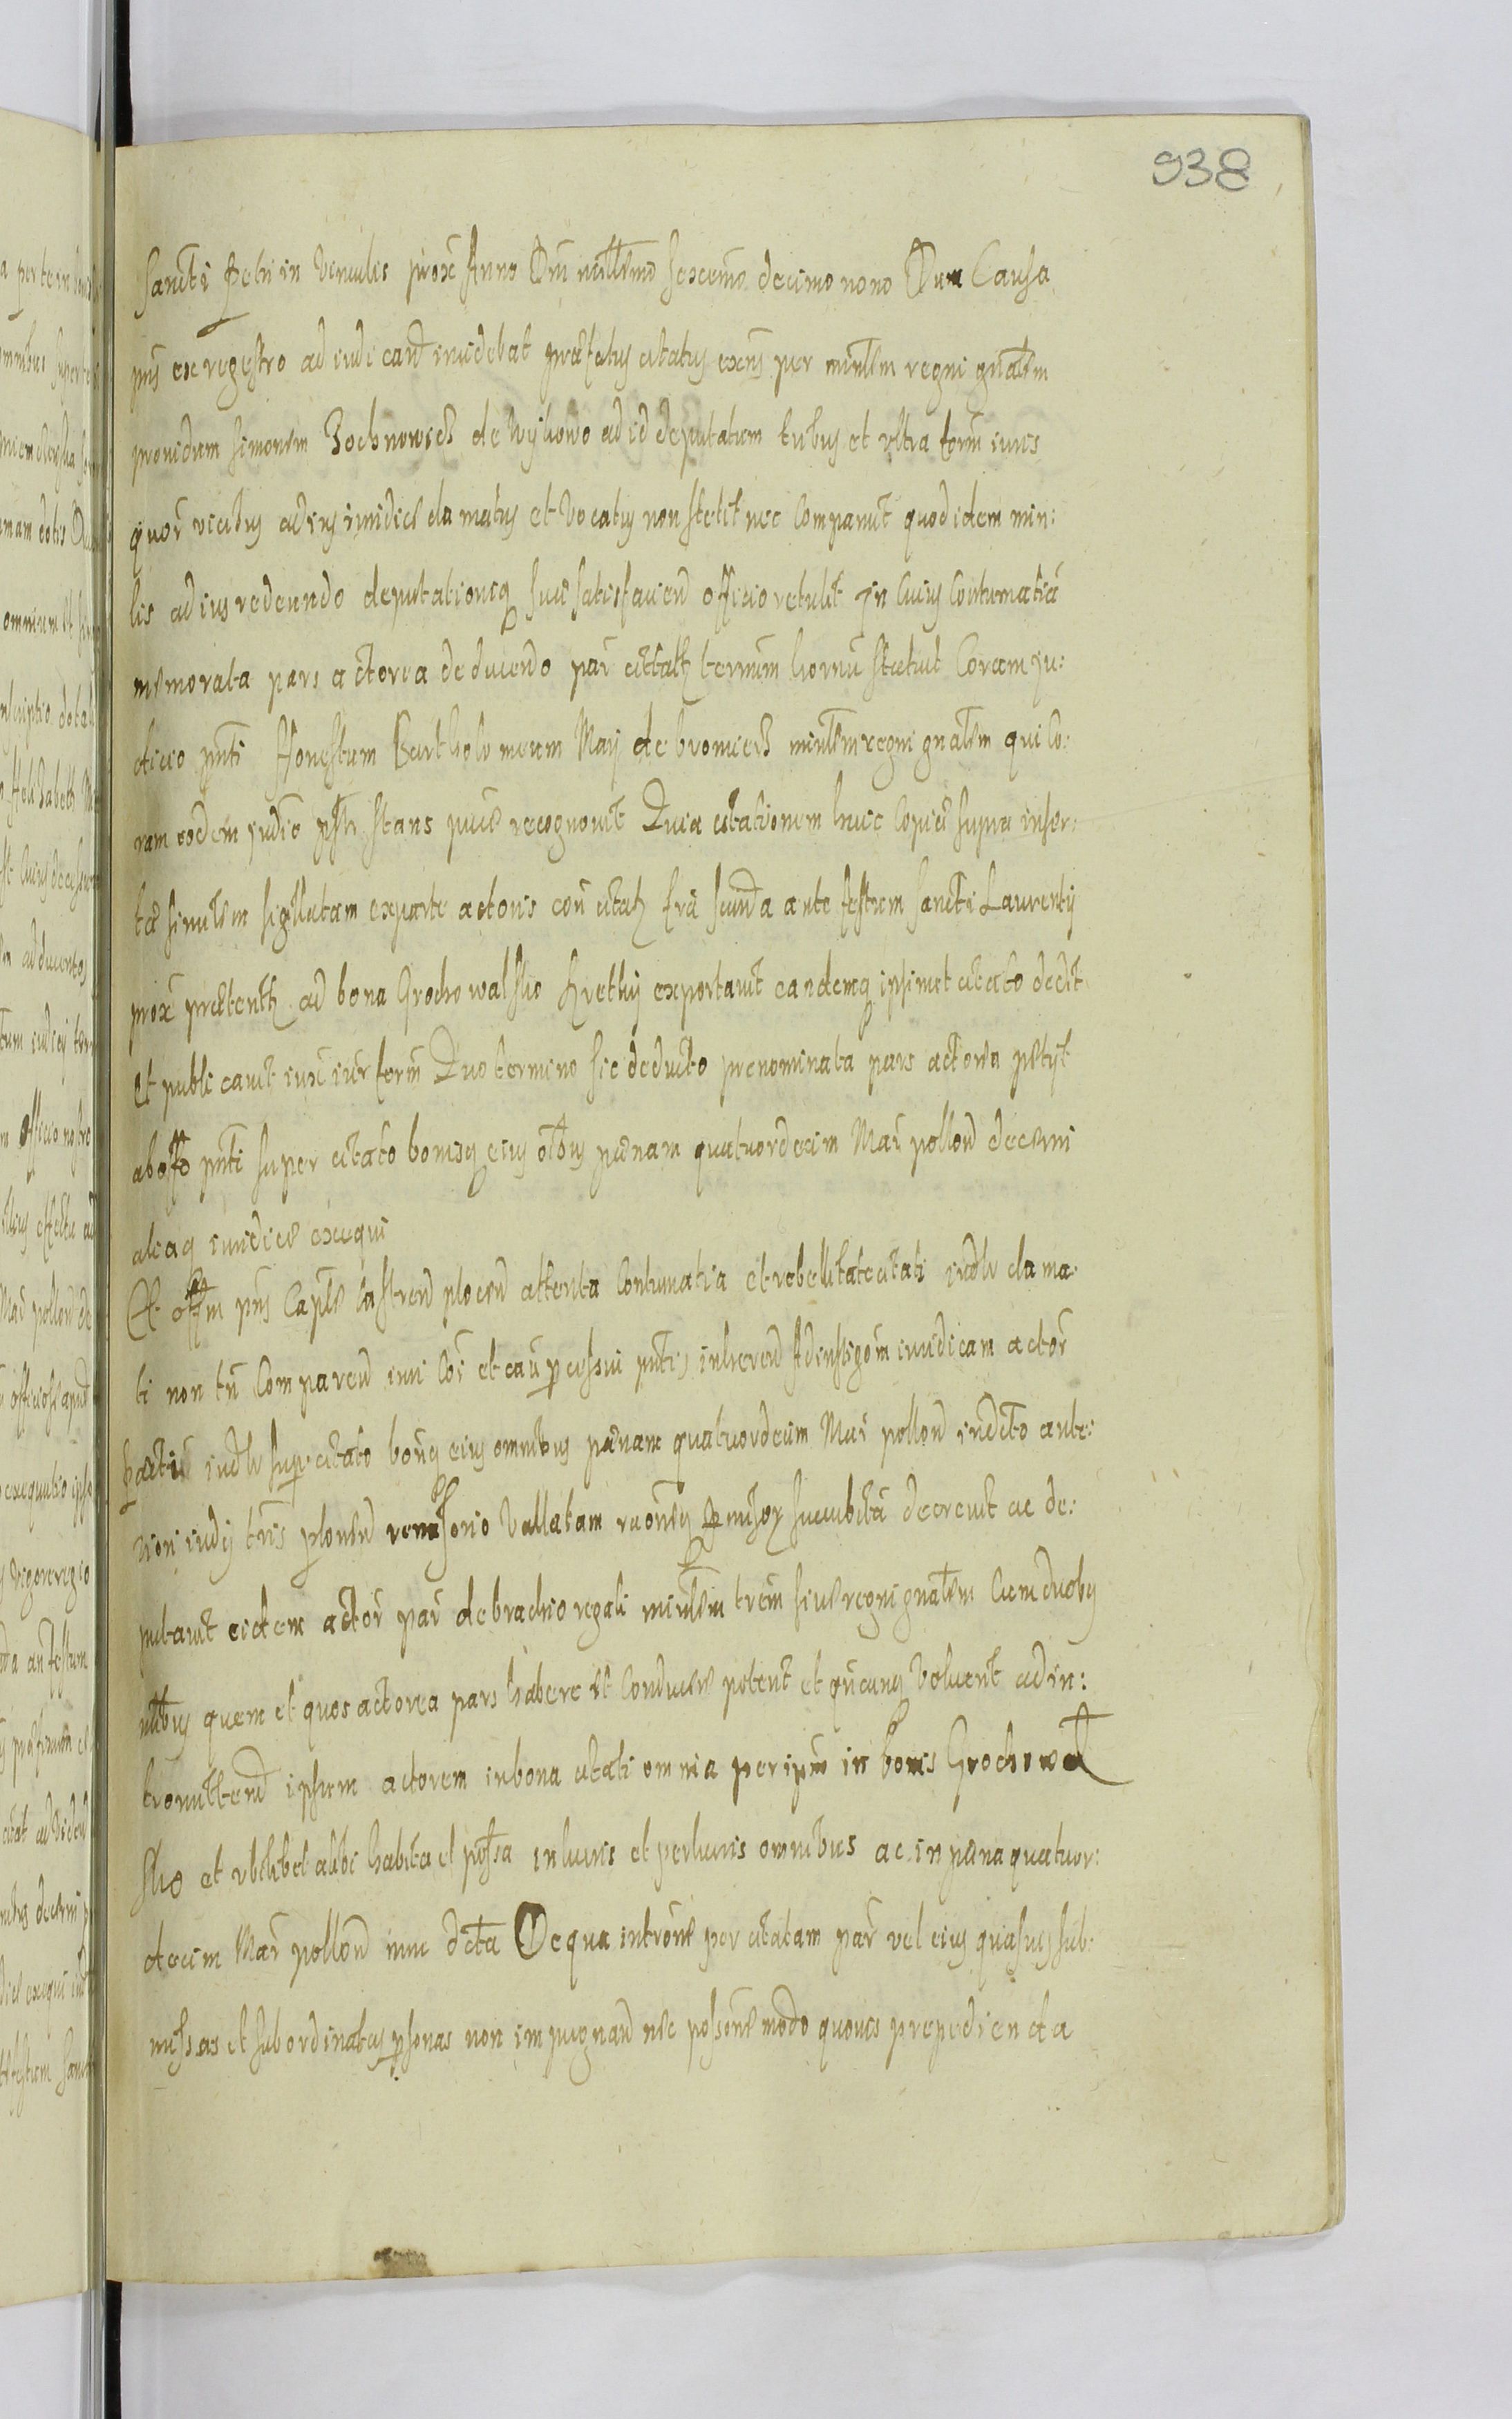 938
Sancti Petri in Vinculis prox Anno Dni millimo sexcemo decimo nono Dum Causa
pns ex regestro ad iudicand incidebat præfatus citatus extns per minlem regni gnalem
providum Simonem de Wykowo ad id deputatum tribus et ultra term iuris
quor vicibus ad ius iuridice clamatus et vocatus non stetit nec Comparuit quod idem min:
lis ad ius redeundo deputationiq suæ satisfaciend officio retulit In Cuius Contumatia
memorata pars actorea deducendo par citatæ termum hornu statuit Coram ju:
dicio pnti Honestum Bartholomeum May de bromierz minlem regni gnalem qui co:
ram eodem judio pslr stans publice recognovit Quia citationem huic copiæ supra inser:
tæ similem sigillatam ex parte actoris con citat fria secunda ante festum sancti Laurentij
prox præterit ad bona Grochowalsko Krethij exportavit eandemq ipsimet citato dedit
Et publicavit iux iur form Quo termino sic deducto prenominata pars actorea petijt
ab offo pnti super citato bonisq eius oibus pænam quatuordecim Mar pollon decerni
aliaq iuridice exequi
Et offm pns Capte Castren plocen attenta Contumatia et rebellitate citati iudlr clama:
ti non tn Comparen iuri coi et cau processui pnti, inheren Ad instigom iuridicam actor
partis iudlr super citato bonisq eius omnibus pænam quatuordecim Mar pollon indicto ante:
riori iudij tris plocen Vallatam decrevit ac de:
putavit eidem actor par de brachio regali minlem trem sive regni gnalem Cum duobus
nlibus quem et quos actorea pars habere et Conducere poterit et quicunq Voluerit ad in:
tromittend ipsum actorem in bona citati omnia per ipsum in bonis Grochowal
sko et ubilibet alibi habita et possa in lucris et perlucris omnibus ac in pæna quatuor:
decim Mar pollon nunc dcta De qua introne per citatam par vel eius quasvis sub:
missas et subordinatas psonas non impugnand nec possone modo quovis prepedienda